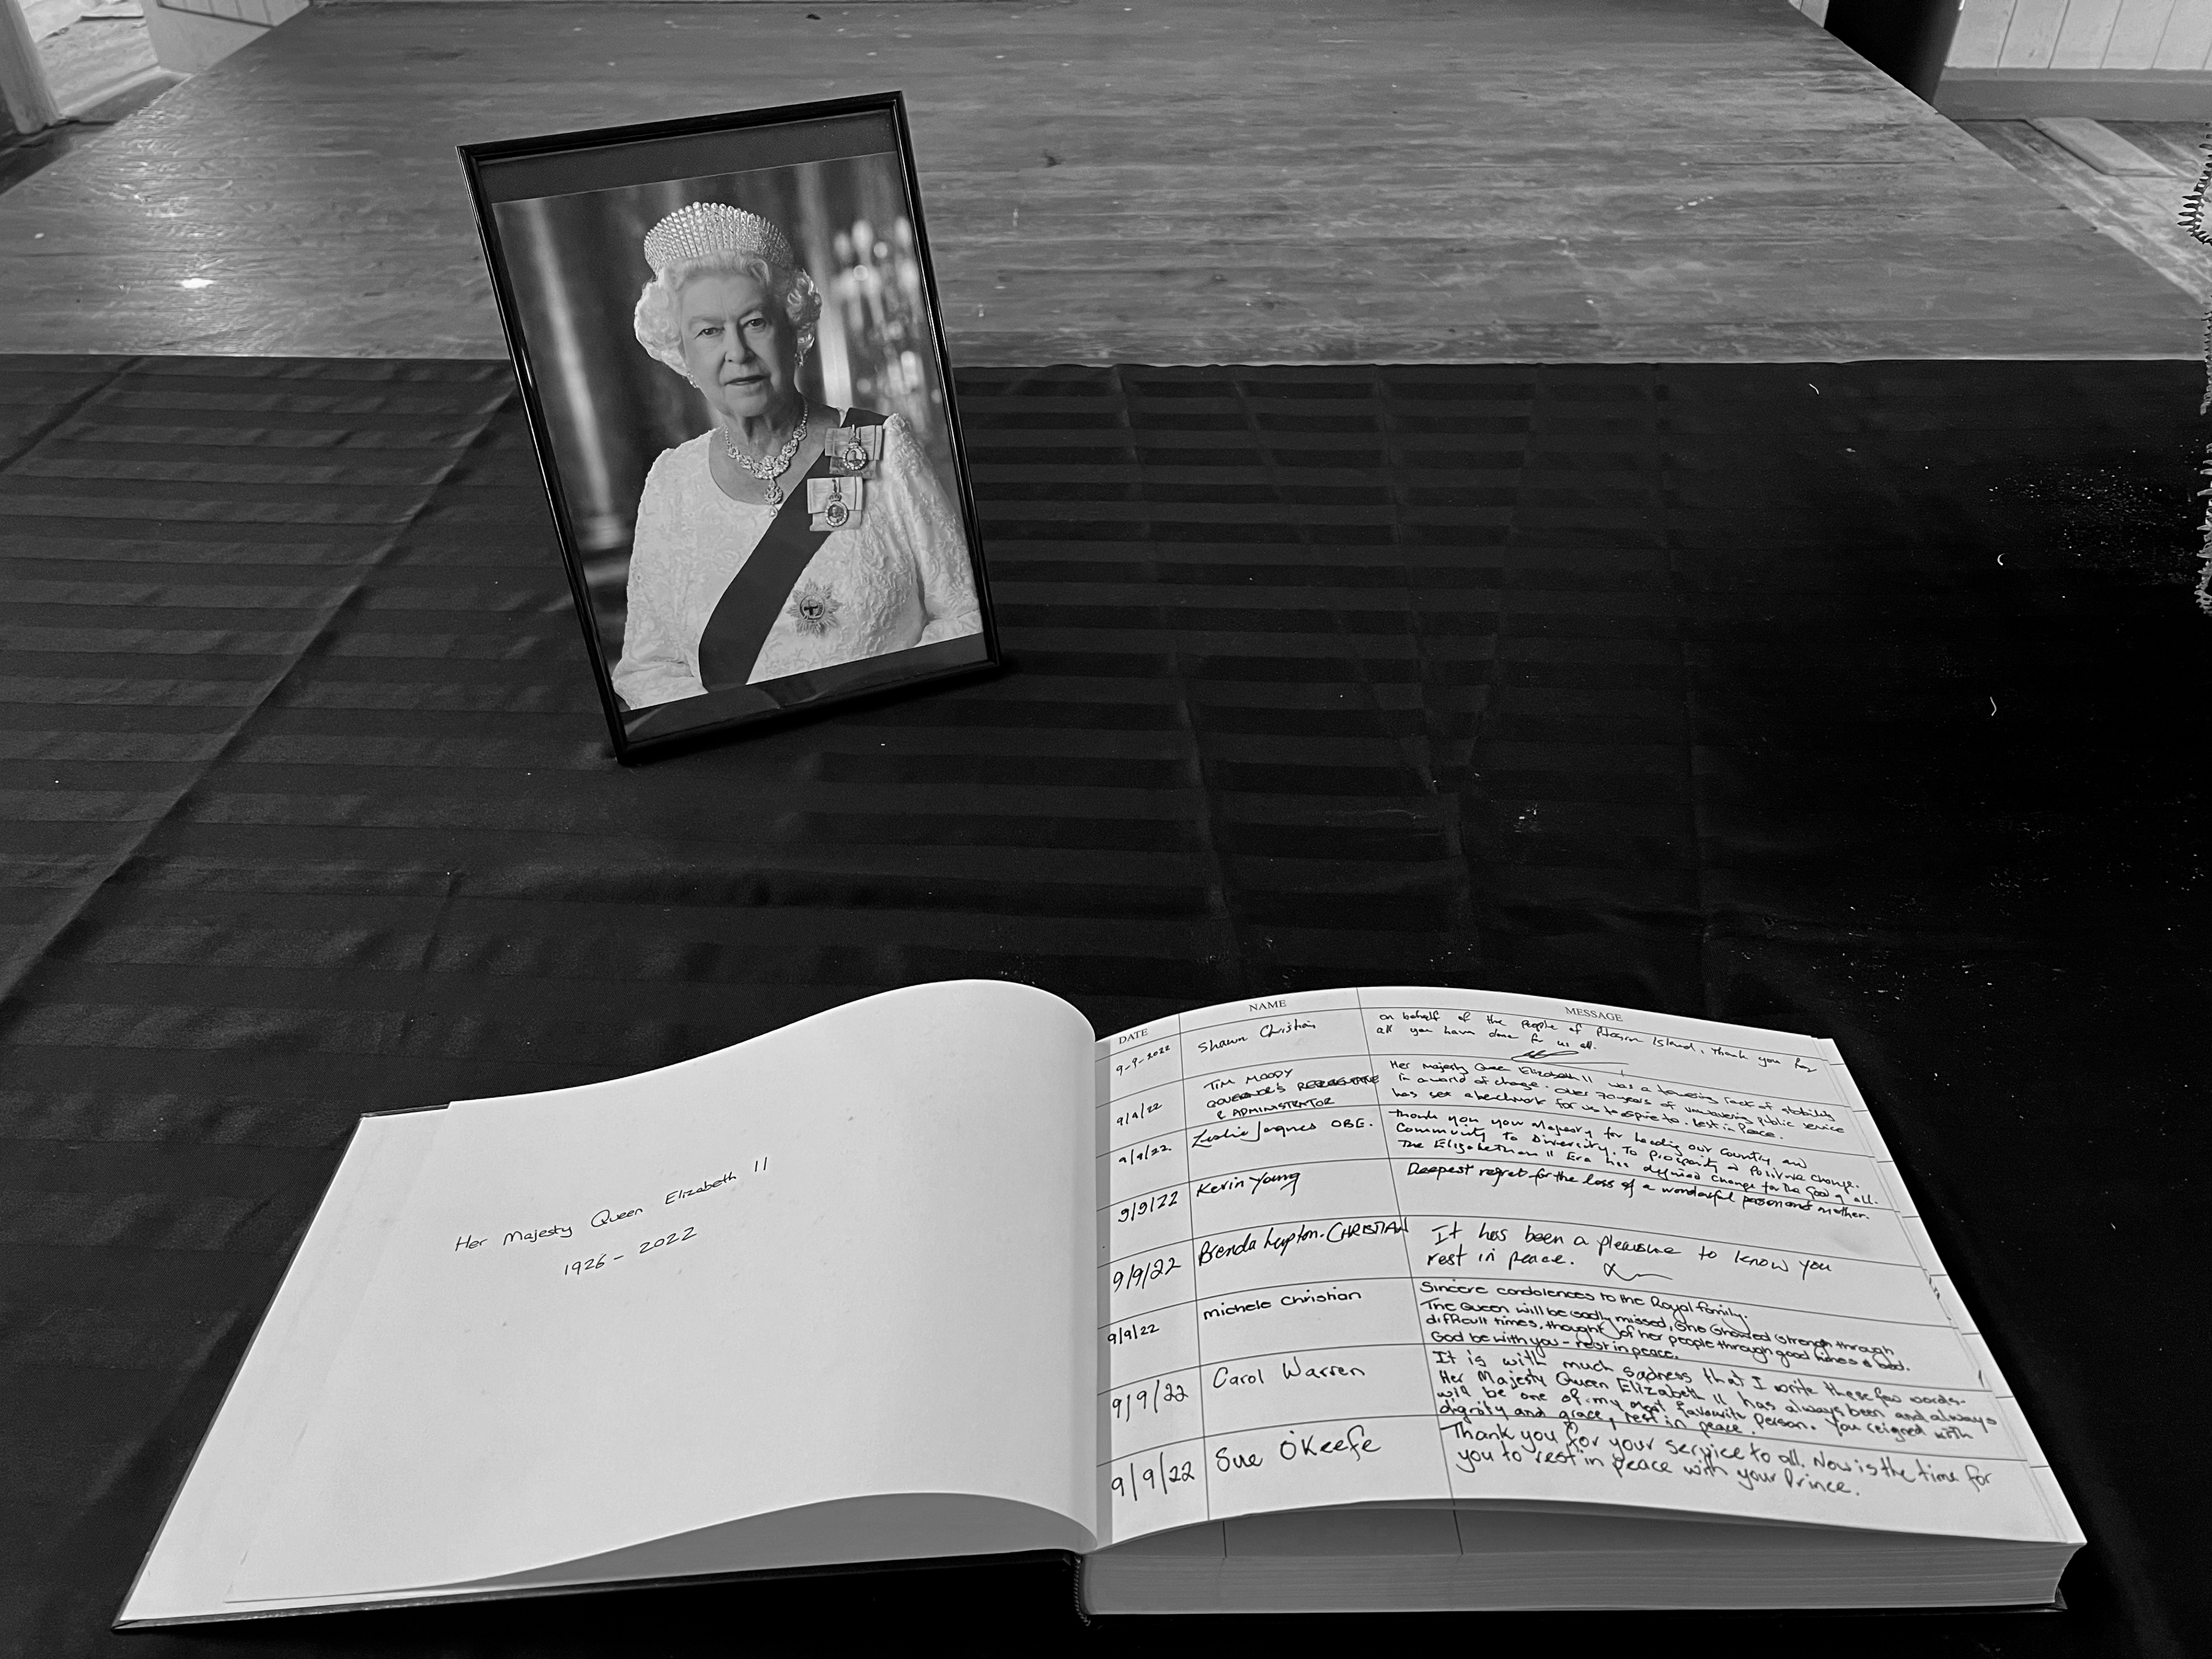 Her Majesty Queen Elizabeth II
1926 - 2022
DATE NAME MESSAGE
9-9-2022 Shawn Christian on behalf of the People of Pitcairn Island, Thank you for
all you have done for us all.
9/9/22 TIM MOODY
GOVERNOR'S REPRESENTATIVE
& ADMINISTRATOR
Her Majesty Queen Elizabeth II was a towering rock of stability
in a world of change. Over 70 years of unwavering public service
has set a benchmark for us to aspire to. Rest in Peace.
9/9/22. Leslie Jaques OBE.
Thank you your Majesty for leading our Country and
Community To Diversity. To Prosperity & Positive Change.
The Elizabethan II Era has defined Change for The Good of all.
9/9/22 Kevin Young Deepest regret for the loss of a wonderful person and mother.
9/9/22 Brenda Lupton-CHRISTIAN It has been a pleasure to know you
rest in peace.
9/9/22 michele Christian Sincere condolences to the Royal family.
The Queen will be sadly missed, She showed strength through
difficult times, thought of her people through good times & bad.
God be with you - rest in peace.
9/9/22 Carol Warren It is with much sadness that I write these few words.
Her Majesty Queen Elizabeth II, has always been and always
will be one of my most favourite person. You reigned with
dignity and grace, rest in peace.
9/9/22 Sue O'Keefe Thank you for your service to all. Now is the time for
you to rest in peace with your Prince.